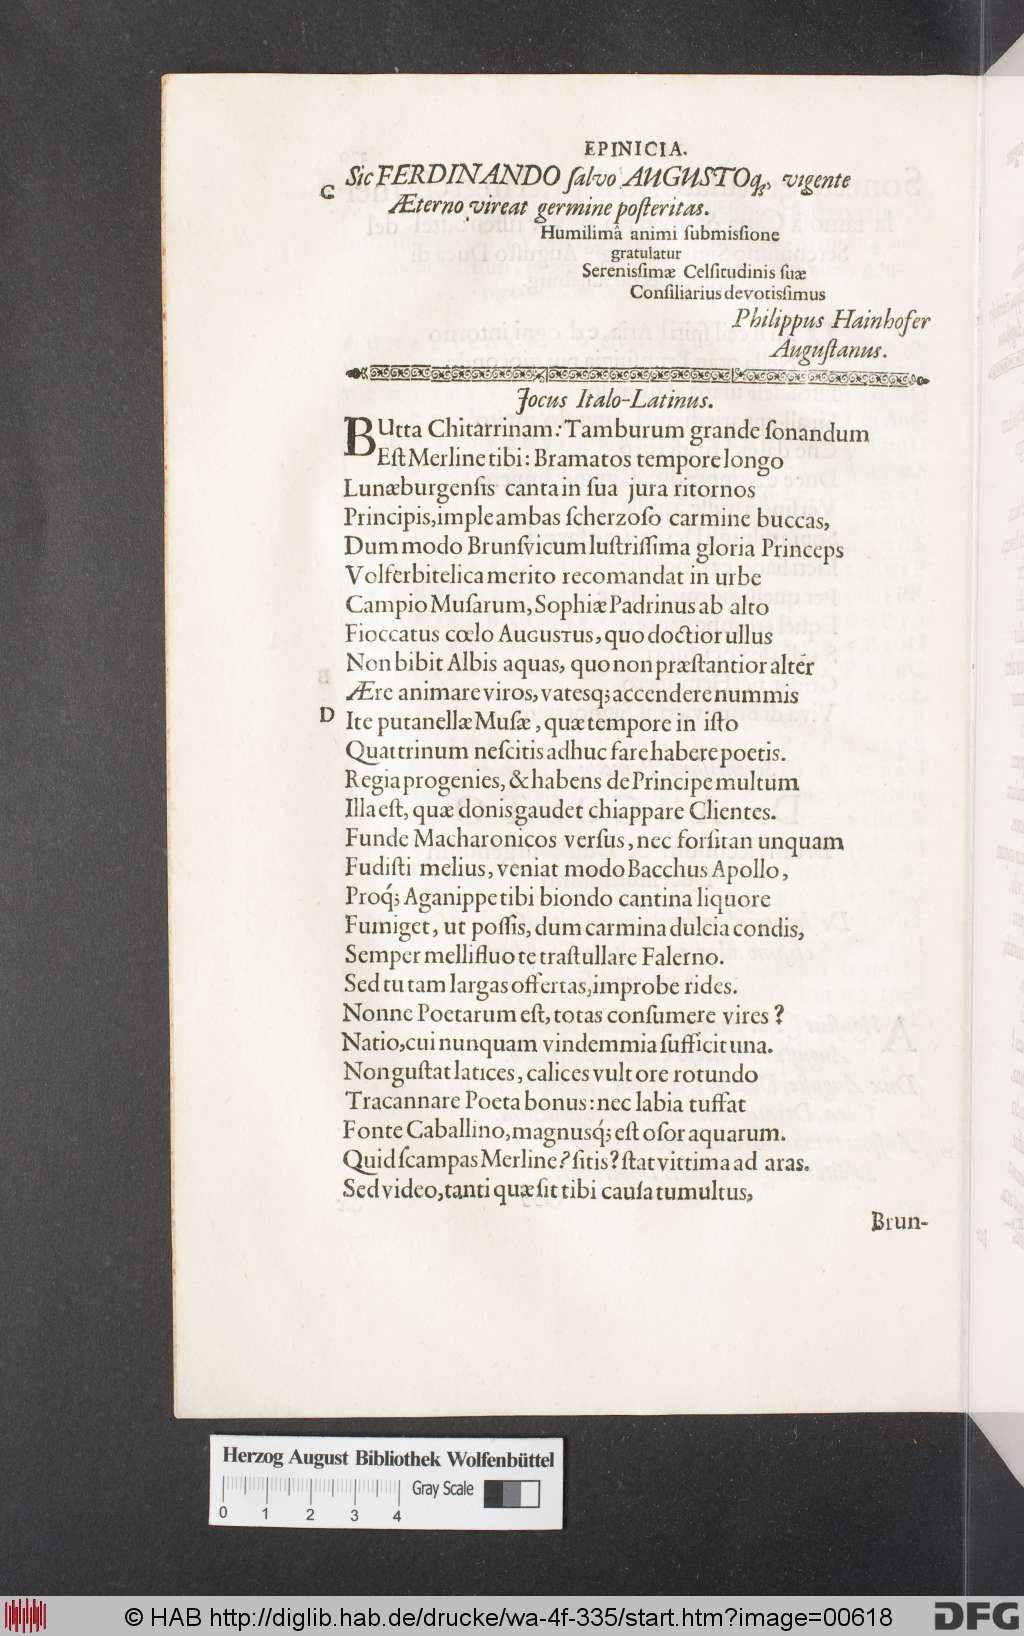 EPINICIA.
C Sic FERDINANDO ſalvo AUGUSTOq́;, vigente
Æterno vireat germine poſteritas.
Humilimâ animi ſubmiſsione
gratulatur
Sereniſsimæ Celſitudinis ſuæ
Conſiliarius devotiſsimus
Philippus Hainhofer
Auguſtanus.
Jocus Italo-Latinus.
BUtta Chitarrinam: Tamburum grande ſonandum
Eſt Merline tibi: Bramatos tempore longo
Lunæburgenſis canta in ſua jura ritornos
Principis, imple ambas ſcherzoſo carmine buccas,
Dum modo Brunſvicum luſtriſſima gloria Princeps
Volferbitelica merito recomandat in urbe
Campio Muſarum, Sophiæ Padrinus ab alto
Fioccatus cœlo AUGUSTUS, quo doctior ullus
Non bibit Albis aquas, quo non præſtantior altér
Ære animare viros, vatesq; accendere nummis
D Ite putanellæ Muſæ, quæ tempore in iſto
Quattrinum neſcitis adhuc fare habere poetis.
Regia progenies, & habens de Principe multum
Illa eſt, quæ donis gaudet chiappare Clientes.
Funde Macharonicos verſus, nec forſitan unquam
Fudiſti melius, veniat modo Bacchus Apollo,
Proq́; Aganippe tibi biondo cantina liquore
Fumiget, ut poſſis, dum carmina dulcia condis,
Semper mellifluo te traſtullare Falerno.
Sed tu tam largas offertas, improbe rides.
Nonne Poetarum eſt, totas conſumere vires?
Natio, cui nunquam vindemmia ſufficit una.
Non guſtat latices, calices vult ore rotundo
Tracannare Poeta bonus: nec labia tuffat
Fonte Caballino, magnusq́; eſt oſor aquarum.
Quid ſcampas Merline? ſitis? ſtat vittima ad aras.
Sed video, tanti quæ ſit tibi cauſa tumultus,
Brun-
Herzog August Bibliothek Wolfenbüttel
Gray Scale
0 1 2 3 4
© HAB http://diglib.hab.de/drucke/wa-4f-335/start.htm?image=00618
DFG